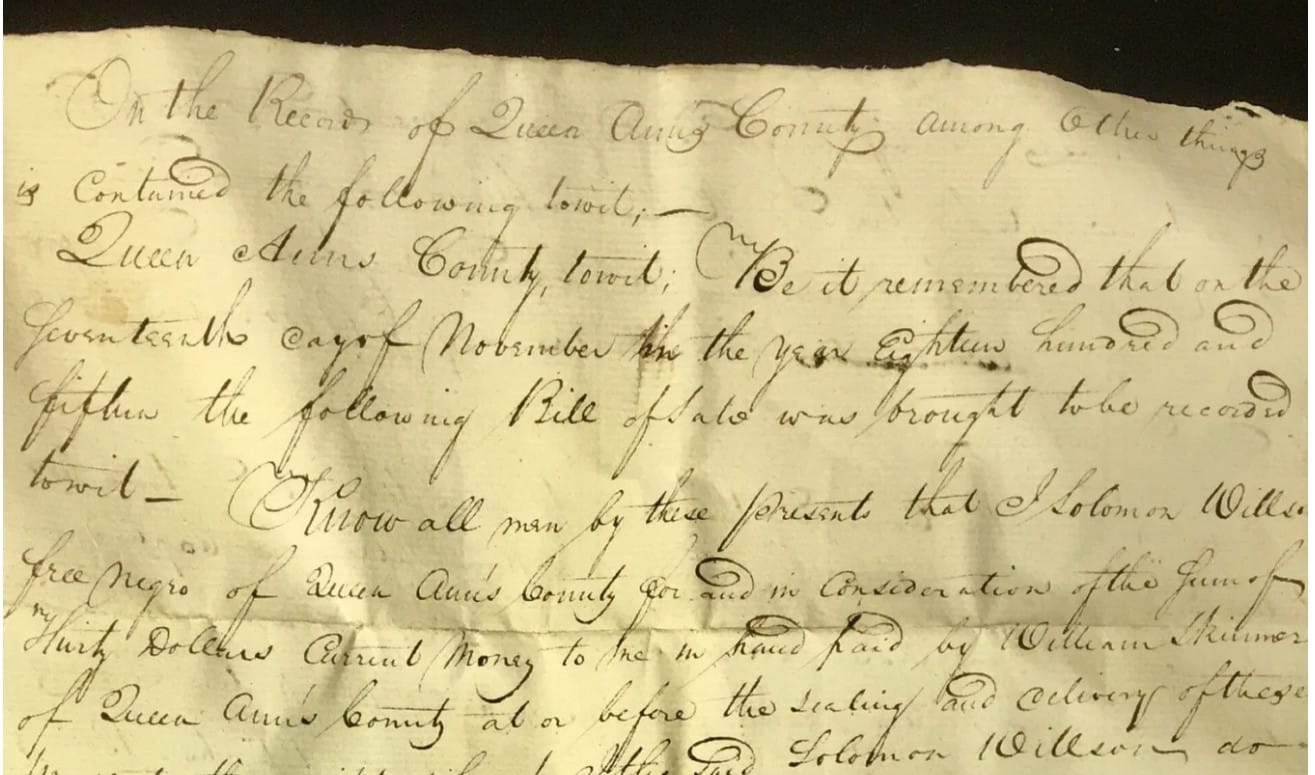 On the Records of Queen Anns County among Other things
is Contained the following towit; —
Queen Anns County, towit; Be it remembered that on the
Seventeenth day of November in the year Eighteen hundred and
fifteen the following Bill of Sale was brought to be recorded
towit — Know all men by these presents that I Solomon Willso
free Negro of Queen Ann's County for and in Consideration of the Sum of
Thirty Dollars Current Money to me in hand paid by William Skinner
of Queen Ann's County at or before the sealing and delivery of these
the said Solomon Willson do